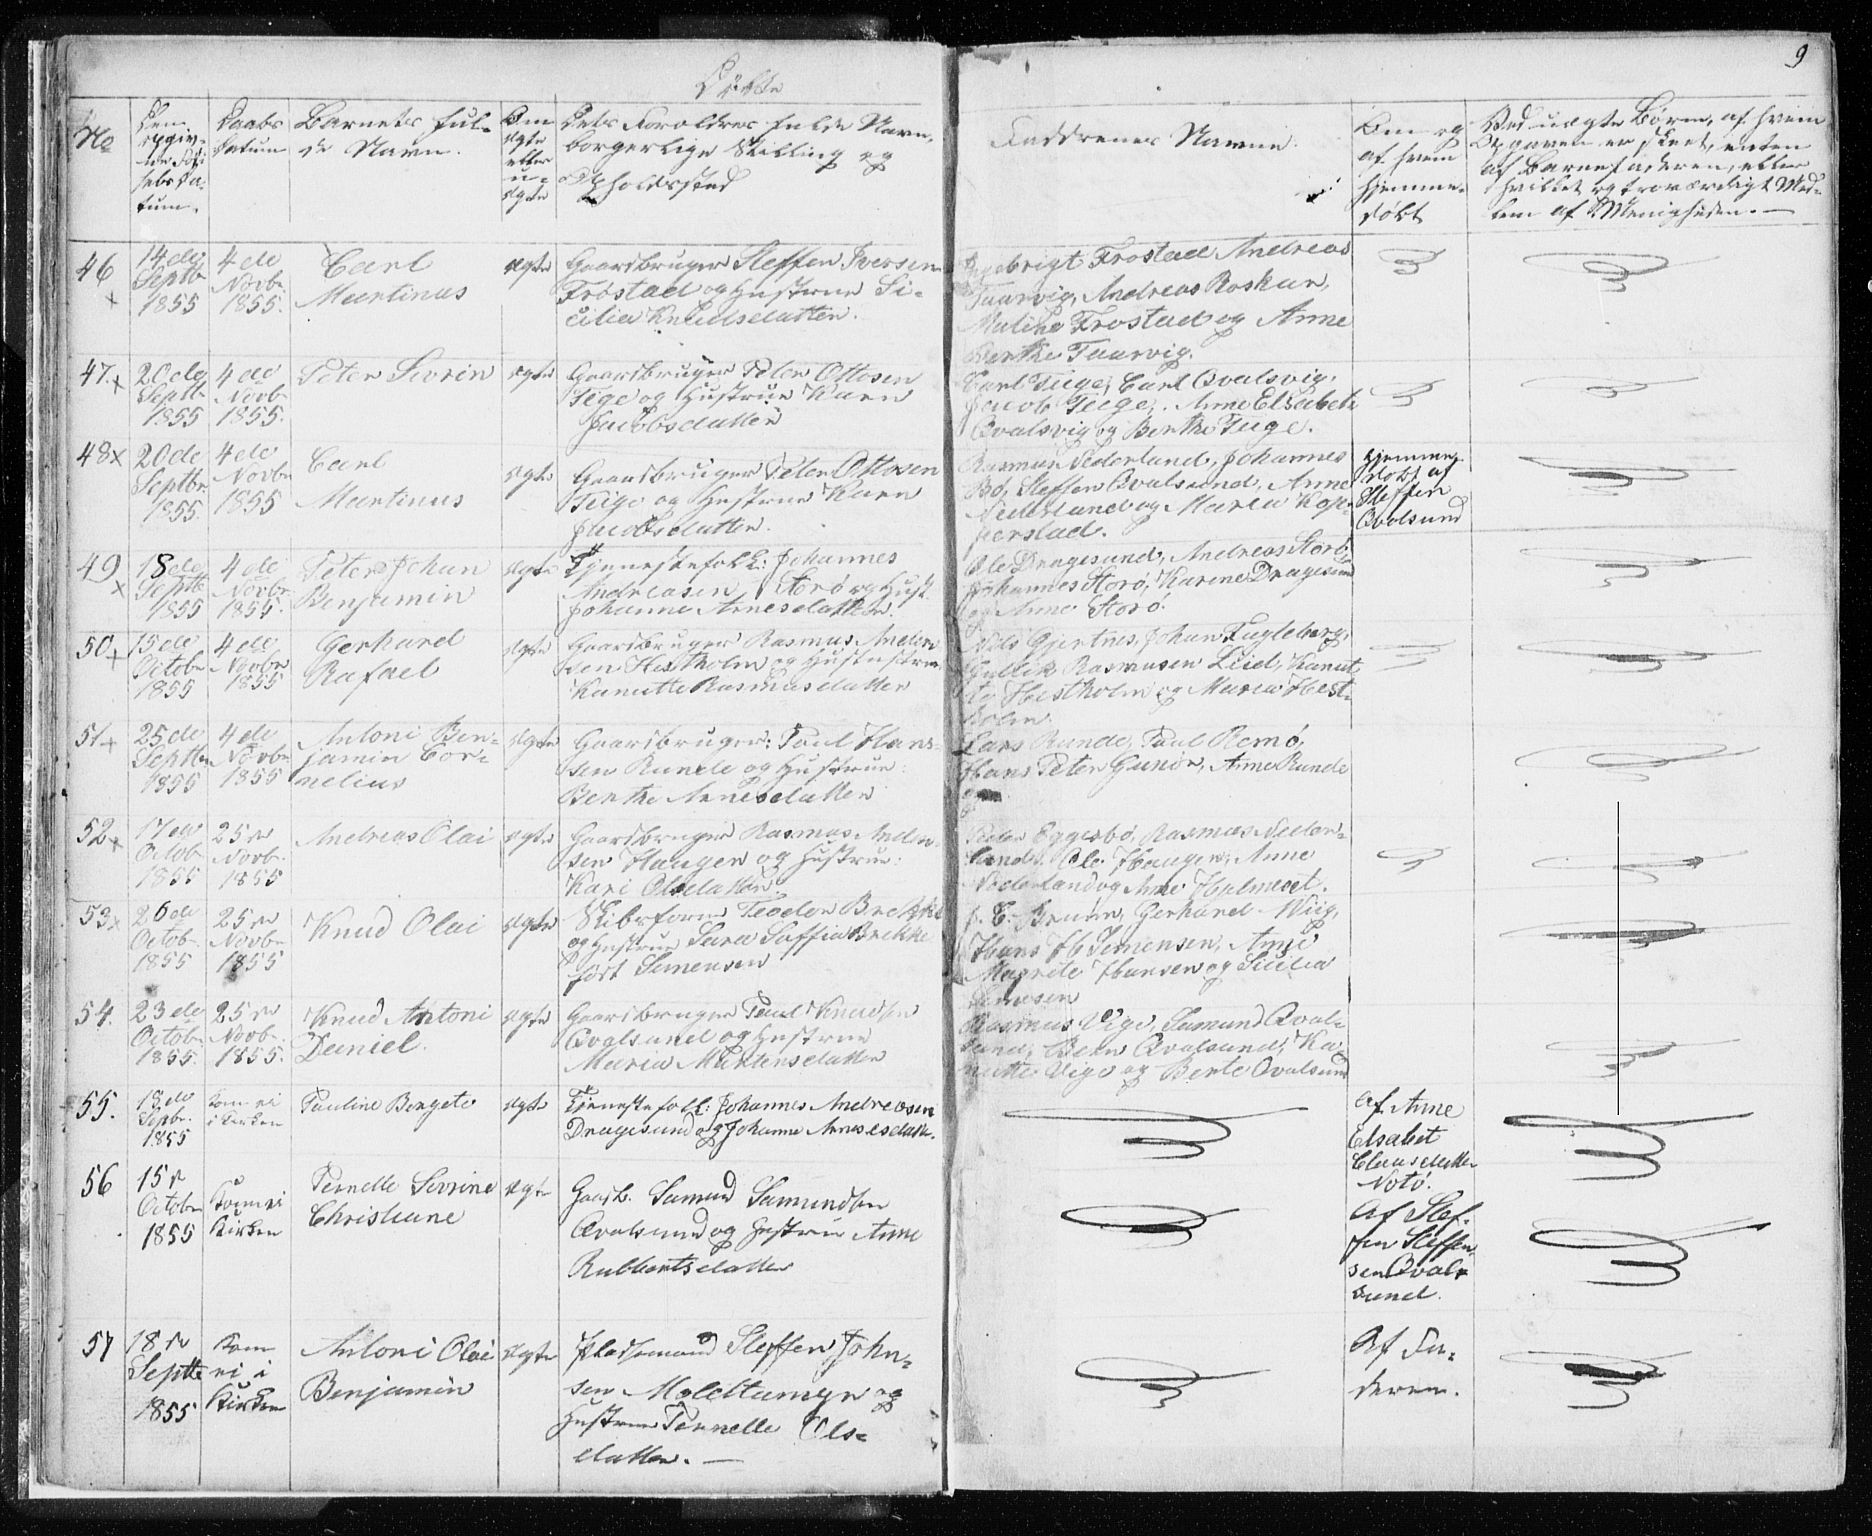 9
Døbte
No
Den
opgiv-
ne Fød-
selsda-
tum.
Daabs
datum
Barnets ful-
de Navn.
Om
ægte
eller
u-
ægte
Dets Forældres fulde Navn,
borgerlige Stilling og
Opholdssted
Faddrenes Navne.
Om og
af hvem
hjemme-
døbt
Ved uægte Børn, af hvem
Opgaven er skeet, enten
af Barnefaderen, eller
hvilket og troværdigt Med-
lem af Menigheden.
46
14de
Septbr
1855
4de
Novbr
1855.
Carl
Martinus
ægte
Gaardbruger Steffen Iversen
Frøstad og Hustrue Si-
cilia Knudsdatter.
Frostad Andreas
Taarvig, Andreas Roskar,
Frostad og Anne
Berthe Taarvig.
47.
20de
Septb
1855
4de
Novb
1855.
Peter Sivrin
ægte
Gaardbruger Peter Ottosen
Teige og Hustrue Karn
Jacobsdatter
Carl Teige, Carl Qvalsvig,
Jacob Teige, Anne Elsabet
Qvalsvig og Berthe Teige.
48
20de
Septbr.
1855.
4de
Novbr
1855
Carl
Martinus
ægte
Gaardbruger Peter Ottosen
Teige og Hustrue Karn
Jacobsdatter.
Rasmus Nederland, Johannes
Bø, Steffen Qvalsund, Anne
Nederland og Maria Kop-
perstad.
Hjemme-
døbt af
Steffen
Qvalsund
49
18de
Septb
1855
4de
Novbr
1855.
Peter Johan
Benjamin
ægte
Tjenestefolk: Johannes
Andreasen Storø og Hust.
Johanne Arnesdatter
Ole Dragesund, Andreas Storø,
Johannes Storø, Karine Dragesund
og Anne Storø.
50
15de
Octobr
1855
4de
Novbr
1855
Gerhard
Rafael
ægte
Gaardbruger Rasmus Ander-
sen Hestholm og Hustrue
Kanutte Rasmusdatter
Nils Gjertnes, Johan Fugleberg,
Gullik Rasmusen Leid, Kanut-
te Hestholm og Maria Hest-
holm.
51
25de
Septbr
1855
4de
Novbr
1855
Antoni Ben-
jamin Cor-
nelius
ægte
Gaardbruger: Paul Hans-
sen Runde og Hustrue:
Berthe Arnesdatter
Lars Runde, Paul Remø,
Hans Peter, Anne Runde
og
52
17de
Octob
1855
25de
Novb.
1855
Andreas Olai
ægte
Gaardbruger Rasmus Ander-
sen Haugen og Hustrue:
Kari Olsdatter
Peder Eggesbø, Rasmus Neder-
land, Ole Haugen, Anne
Nederland og Anne Hjelmeset.
53
26de
Octob.
1855
25de
Novbr
1855
Knud Olai
ægte
Skibsfører Teodor Brekke
og Hustrue Sara Soffia Brekke
født Semensen
J. C. Bruun, Gerhard Wiig,
Hans H Semensen, Anne
Magrete Hansen og Sicilia
54.
23de
Octobr
1855.
25de
Novb.
1855.
Knud Antoni
Daniel.
ægte
Gaardbruger Paul Knudsen
Qvalsund og Hustrue
Maria Martensdatter
Rasmus Vige, Samund Qval-
sund, Bern Qvalsund, Ka-
nutte Vige og Berte Qvalsund
55.
18de
Sepbr.
1855
Kom ei
i Kirken
Pauline Bergete
ægte
Tjenestefolk: Johannes Andreasen
Dragesund og Johanne Arnesdatter.
Af Anne
Elsabet
Clausdatter
Notø.
56
15de
Octobr
1855
Kom ei
Kirken
Pernelle Sivrine
Christiane
ægte
Gaardb. Samund Samundsen
Qvalsund og Hustrue Anne
Rubbertsdatter
Af Stef-
fen Steffen-
sen Qval-
sund.
57
18de
Septb
1855
Kom
ei i
Kirken
Antoni Olai
Benjamin
ægte
Pladsemand Steffen John-
sen Moldtumyr og
Hustrue Pernelle Ols-
datter.
Af Fa-
deren.